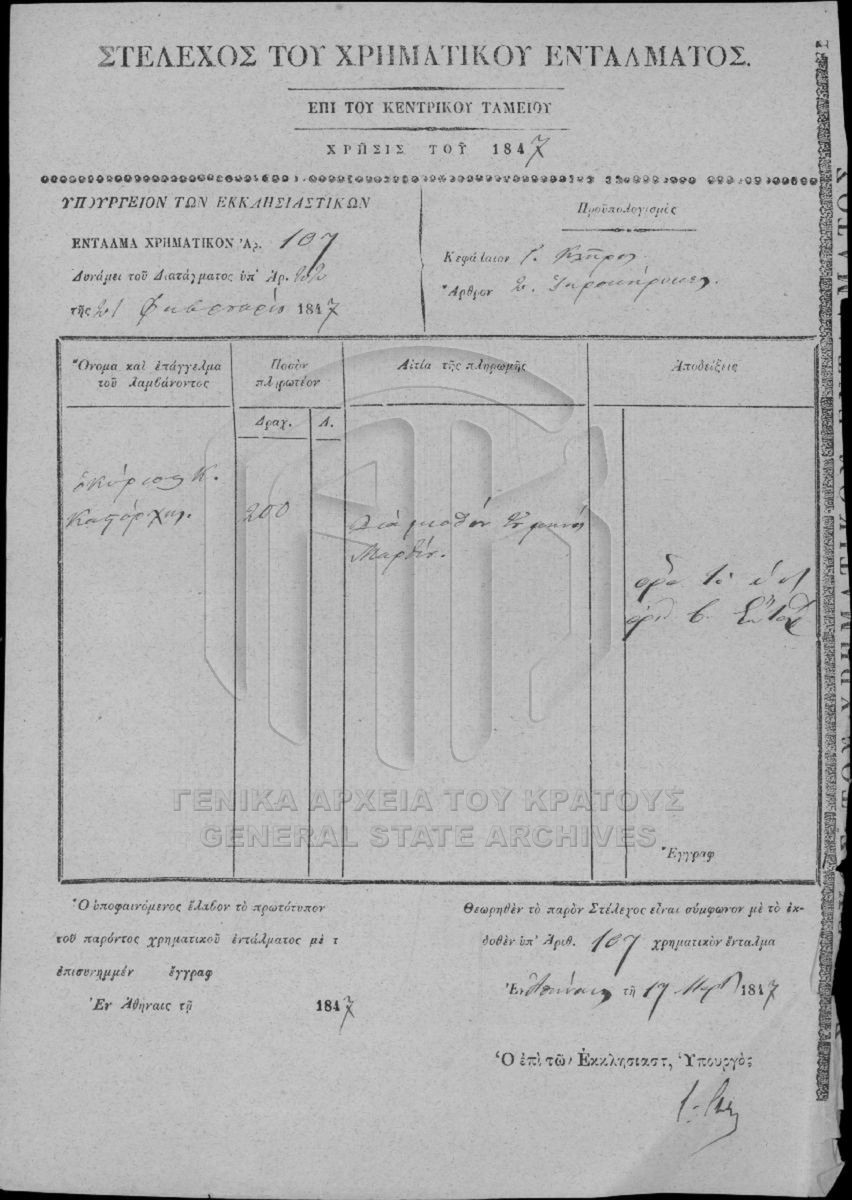 ΣΤΕΛΕΧΟΣ ΤΟΥ ΧΡΗΜΑΤΙΚΟΥ ΕΝΤΑΛΜΑΤΟΣ.
ΕΠΙ ΤΟΥ ΚΕΝΤΡΙΚΟΥ ΤΑΜΕΙΟΥ
ΧΡΗΣΙΣ ΤΟΥ 1847
ΥΠΟΥΡΓΕΙΟΝ ΤΩΝ ΕΚΚΛΗΣΙΑΣΤΙΚΩΝ
ΕΝΤΑΛΜΑ ΧΡΗΜΑΤΙΚΟΝ Ἀρ. 107
Δυνάμει τοῦ Διατάγματος ὑπ' Ἀρ.
τῆς 21 Φεβρουαρίου 1847
Προϋπολογισμὸς
Κεφάλαιον Γ. Κλῆρος
Ἄρθρον 2. Ἱεροκήρυκες.
Ὄνομα καὶ ἐπάγγελμα
τοῦ λαμβάνοντος
Ποσὸν
πληρωτέον
Αἰτία τῆς πληρωμῆς
Ἀποδείξεις
Δραχ. Λ.
Κ.
200
Διὰ μισθόν τοῦ μηνός
Μαρτίου.
ΓΕΝΙΚΑ ΑΡΧΕΙΑ ΤΟΥ ΚΡΑΤΟΥΣ
GENERAL STATE ARCHIVES
Ἔγγραφ
Ὁ ὑποφαινόμενος ἔλαβον τὸ πρωτότυπον
τοῦ παρόντος χρηματικοῦ ἐντάλματος μὲ τ
ἐπισυνημμέν ἔγγραφ
Ἐν Ἀθήναις τῇ 1847
Θεωρηθὲν τὸ παρὸν Στέλεχος εἶναι σύμφωνον μὲ τὸ ἐκ-
δοθὲν ὑπ' Ἀριθ. 107 χρηματικὸν ἔνταλμα
Ἐν Ἀθήναις τῇ 17 Μαρτ 1847
Ὁ ἐπὶ τῶν Ἐκκλησιαστ, Ὑπουργὸς